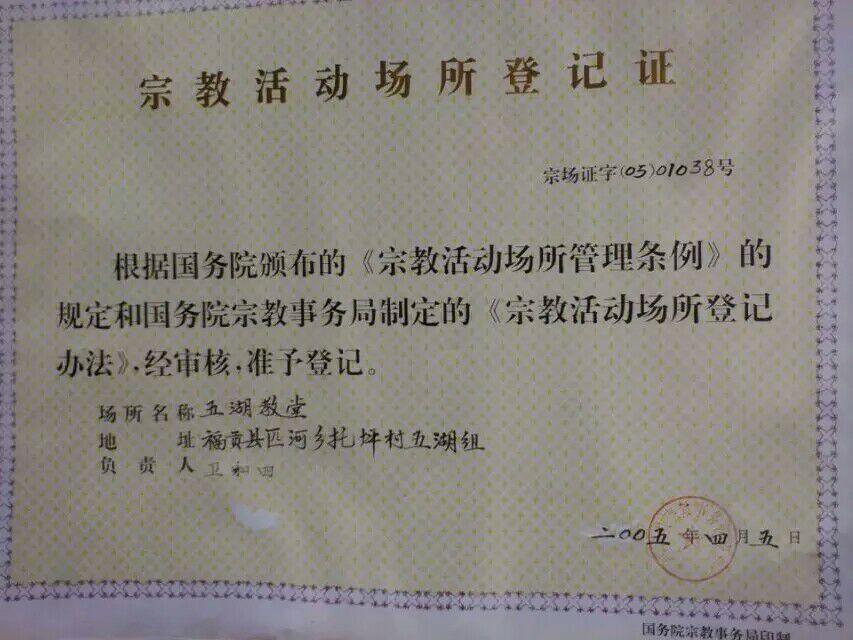 宗教活动场所登记证
宗场证字(05)01038号
根据国务院颁布的《宗教活动场所管理条例》的
规定和国务院宗教事务局制定的《宗教活动场所登记
办法》,经审核,准予登记。
场所名称 五湖教堂
地 址 福贡县匹河乡托坪村五湖组
负责人 卫和四
二00五年四月五日
国务院宗教事务局印制